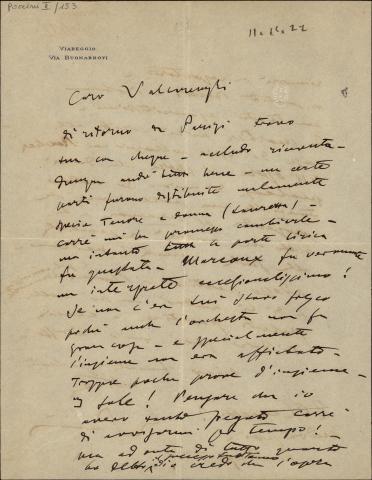 Puccini II/153
11.12.22
VIAREGGIO
VIA BUONARROTI
Caro Valcarenghi
di ritorno da Parigi trovo
sua con cheque - accludo ricevuta -
Dunque andò tutto bene - ma certe
parti furono distribuite malamente
specie Tenore e donna (Lauretta) -
Carré mi ha promesso cambiarle -
ma intanto la parte lirica
fu guastata - Marcoux fu veramente
un interprete eccezionalissimo!
Se non c'era lui
perché anche l'orchestra non fu
gran cosa - e specialmente
l'insieme non era affiatato -
Troppe poche prove d'insieme -
Pensare che io
avevo tanto pregato Carré
di avvisarmi per tempo! -
ma ad onta di tutto questo
credo che l'opera